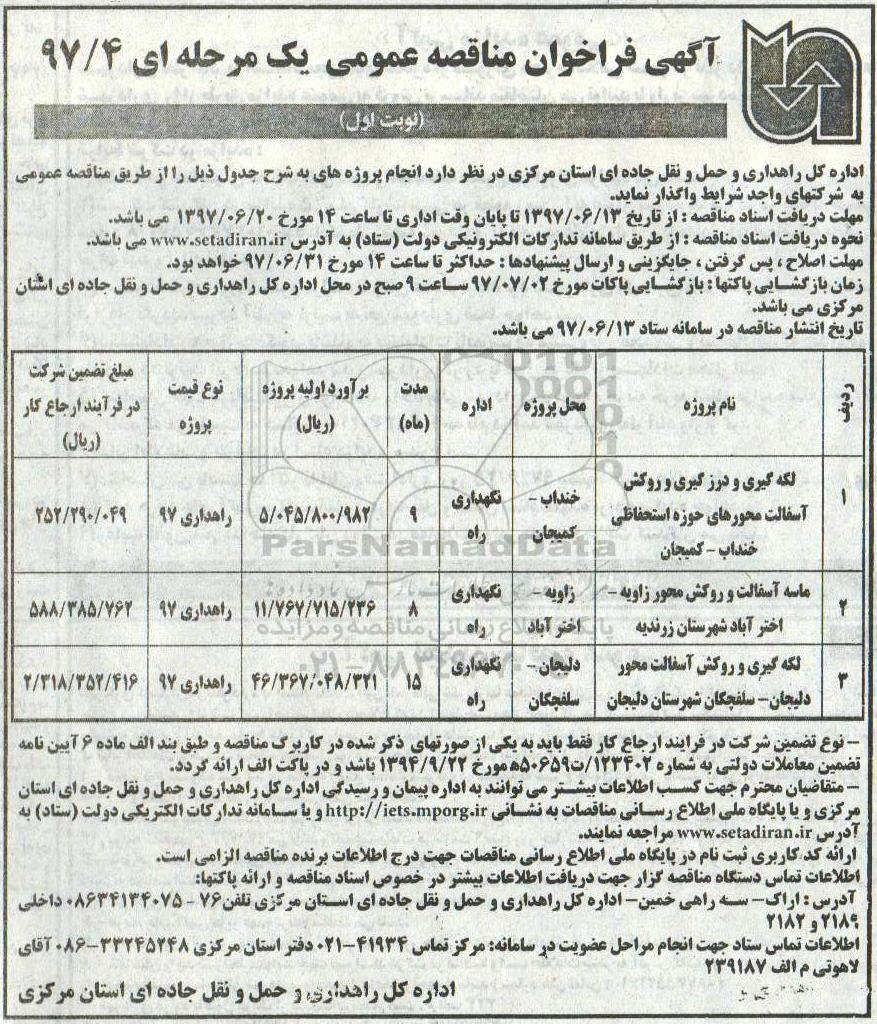 آگهی فراخوان مناقصه عمومی یک مرحله ای ۹۷/۴
(نوبت اول)
اداره کل راهداری و حمل و نقل جاده ای استان مرکزی در نظر دارد انجام پروژه های به شرح جدول ذیل را از طریق مناقصه عمومی
به شرکتهای واجد شرایط واگذار نماید.
مهلت دریافت اسناد مناقصه : از تاریخ ۱۳۹۷/۰۶/۱۳ تا پایان وقت اداری تا ساعت ۱۴ مورخ ۱۳۹۷/۰۶/۲۰ می باشد.
نحوه دریافت اسناد مناقصه : از طریق سامانه تدارکات الکترونیکی دولت (ستاد) به آدرس www.setadiran.ir می باشد.
مهلت اصلاح ، پس گرفتن ، جایگزینی و ارسال پیشنهادها : حداکثر تا ساعت ۱۴ مورخ ۹۷/۰۶/۳۱ خواهد بود.
زمان بازگشایی پاکتها : بازگشایی پاکات مورخ ۹۷/۰۷/۰۲ ساعت ۹ صبح در محل اداره کل راهداری و حمل و نقل جاده ای استان
مرکزی می باشد.
تاریخ انتشار مناقصه در سامانه ستاد ۹۷/۰۶/۱۳ می باشد.
ردیف | نام پروژه | محل پروژه | اداره | مدت (ماه) | برآورد اولیه پروژه (ریال) | نوع قیمت پروژه | مبلغ تضمین شرکت در فرآیند ارجاع کار (ریال)
۱ | لکه گیری و درز گیری و روکش آسفالت محورهای حوزه استحفاظی خنداب - کمیجان | خنداب - کمیجان | نگهداری راه | ۹ | ۵/۰۴۵/۸۰۰/۹۸۲ | راهداری ۹۷ | ۲۵۲/۲۹۰/۰۴۹
۲ | ماسه آسفالت و روکش محور زاویه - اختر آباد شهرستان زرندیه | زاویه - اختر آباد | نگهداری راه | ۸ | ۱۱/۷۶۷/۷۱۵/۲۳۶ | راهداری ۹۷ | ۵۸۸/۳۸۵/۷۶۲
۳ | لکه گیری و روکش آسفالت محور دلیجان - سلفچگان شهرستان دلیجان | دلیجان - سلفچگان | نگهداری راه | ۱۵ | ۴۶/۳۶۷/۰۴۸/۳۲۱ | راهداری ۹۷ | ۲/۳۱۸/۳۵۲/۴۱۶
ParsNamadData
- نوع تضمین شرکت در فرایند ارجاع کار فقط باید به یکی از صورتهای ذکر شده در کاربرگ مناقصه و طبق بند الف ماده ۶ آیین نامه
تضمین معاملات دولتی به شماره ۱۲۳۴۰۲/ت۵۰۶۵۹ه مورخ ۱۳۹۴/۹/۲۲ باشد و در پاکت الف ارائه گردد.
- متقاضیان محترم جهت کسب اطلاعات بیشتر می توانند به اداره پیمان و رسیدگی اداره کل راهداری و حمل و نقل جاده ای استان
مرکزی و یا پایگاه ملی اطلاع رسانی مناقصات به نشانی http://iets.mporg.ir و یا سامانه تدارکات الکتریکی دولت (ستاد) به
آدرس www.setadiran.ir مراجعه نمایند.
ارائه کد کاربری ثبت نام در پایگاه ملی اطلاع رسانی مناقصات جهت درج اطلاعات برنده مناقصه الزامی است.
اطلاعات تماس دستگاه مناقصه گزار جهت دریافت اطلاعات بیشتر در خصوص اسناد مناقصه و ارائه پاکتها:
آدرس : اراک- سه راهی خمین- اداره کل راهداری و حمل و نقل جاده ای استان مرکزی تلفن۷۶ - ۰۸۶۳۴۱۳۴۰۷۵ داخلی
۲۱۸۹ و ۲۱۸۲
اطلاعات تماس ستاد جهت انجام مراحل عضویت در سامانه: مرکز تماس ۴۱۹۳۴-۰۲۱ دفتر استان مرکزی ۳۳۲۴۵۲۴۸-۰۸۶ آقای
لاهوتی م الف ۲۳۹۱۸۷
اداره کل راهداری و حمل و نقل جاده ای استان مرکزی